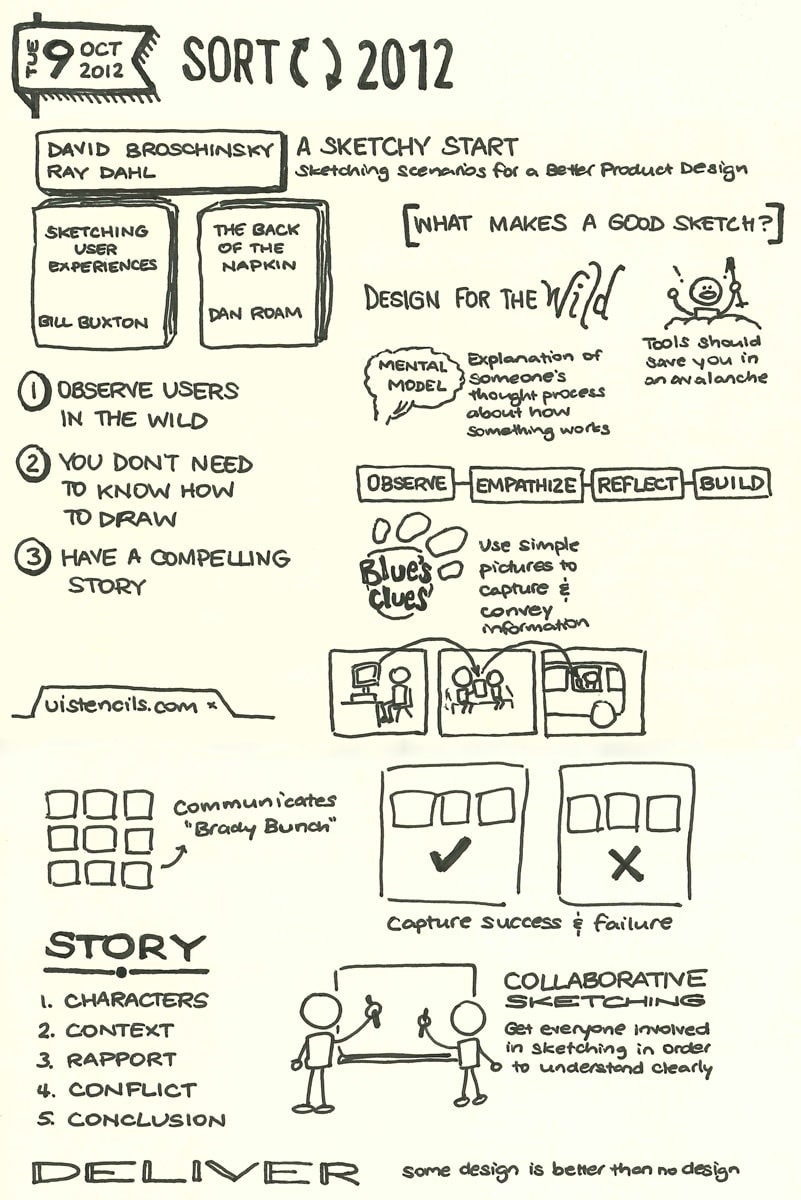 TUE 9 OCT 2012
SORT 2012
DAVID BROSCHINSKY
RAY DAHL
A SKETCHY START
Sketching scenarios for a Better Product Design
SKETCHING
USER
EXPERIENCES
BILL BUXTON
THE BACK
OF THE
NAPKIN
DAN ROAM
[WHAT MAKES A GOOD SKETCH?]
DESIGN FOR THE Wild
Tools should
save you in
an avalanche
MENTAL
MODEL
Explanation of
someone's
thought process
about how
something works
1 OBSERVE USERS
IN THE WILD
2 YOU DON'T NEED
TO KNOW HOW
TO DRAW
3 HAVE A COMPELLING
STORY
OBSERVE EMPATHIZE REFLECT BUILD
Blue's
Clues
Use simple
pictures to
capture &
convey
information
uistencils.com x
Communicates
"Brady Bunch"
Capture success & failure
STORY
1. CHARACTERS
2. CONTEXT
3. RAPPORT
4. CONFLICT
5. CONCLUSION
COLLABORATIVE
SKETCHING
Get everyone involved
in sketching in order
to understand clearly
DELIVER
some design is better than no design